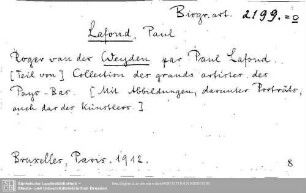 Biogr. art. 2199.=o
Lafond, Paul
Roger van der Weyden par Paul Lafond.
[Teil von] Collection des grands artistes des
Pays-Bas. [Mit Abbildungen, darunter Porträts,
auch dar des Künstlers.]
Bruxelles, Paris. 1912. 8
Sächsische Landesbibliothek -
Staats- und Universitätsbibliothek Dresden